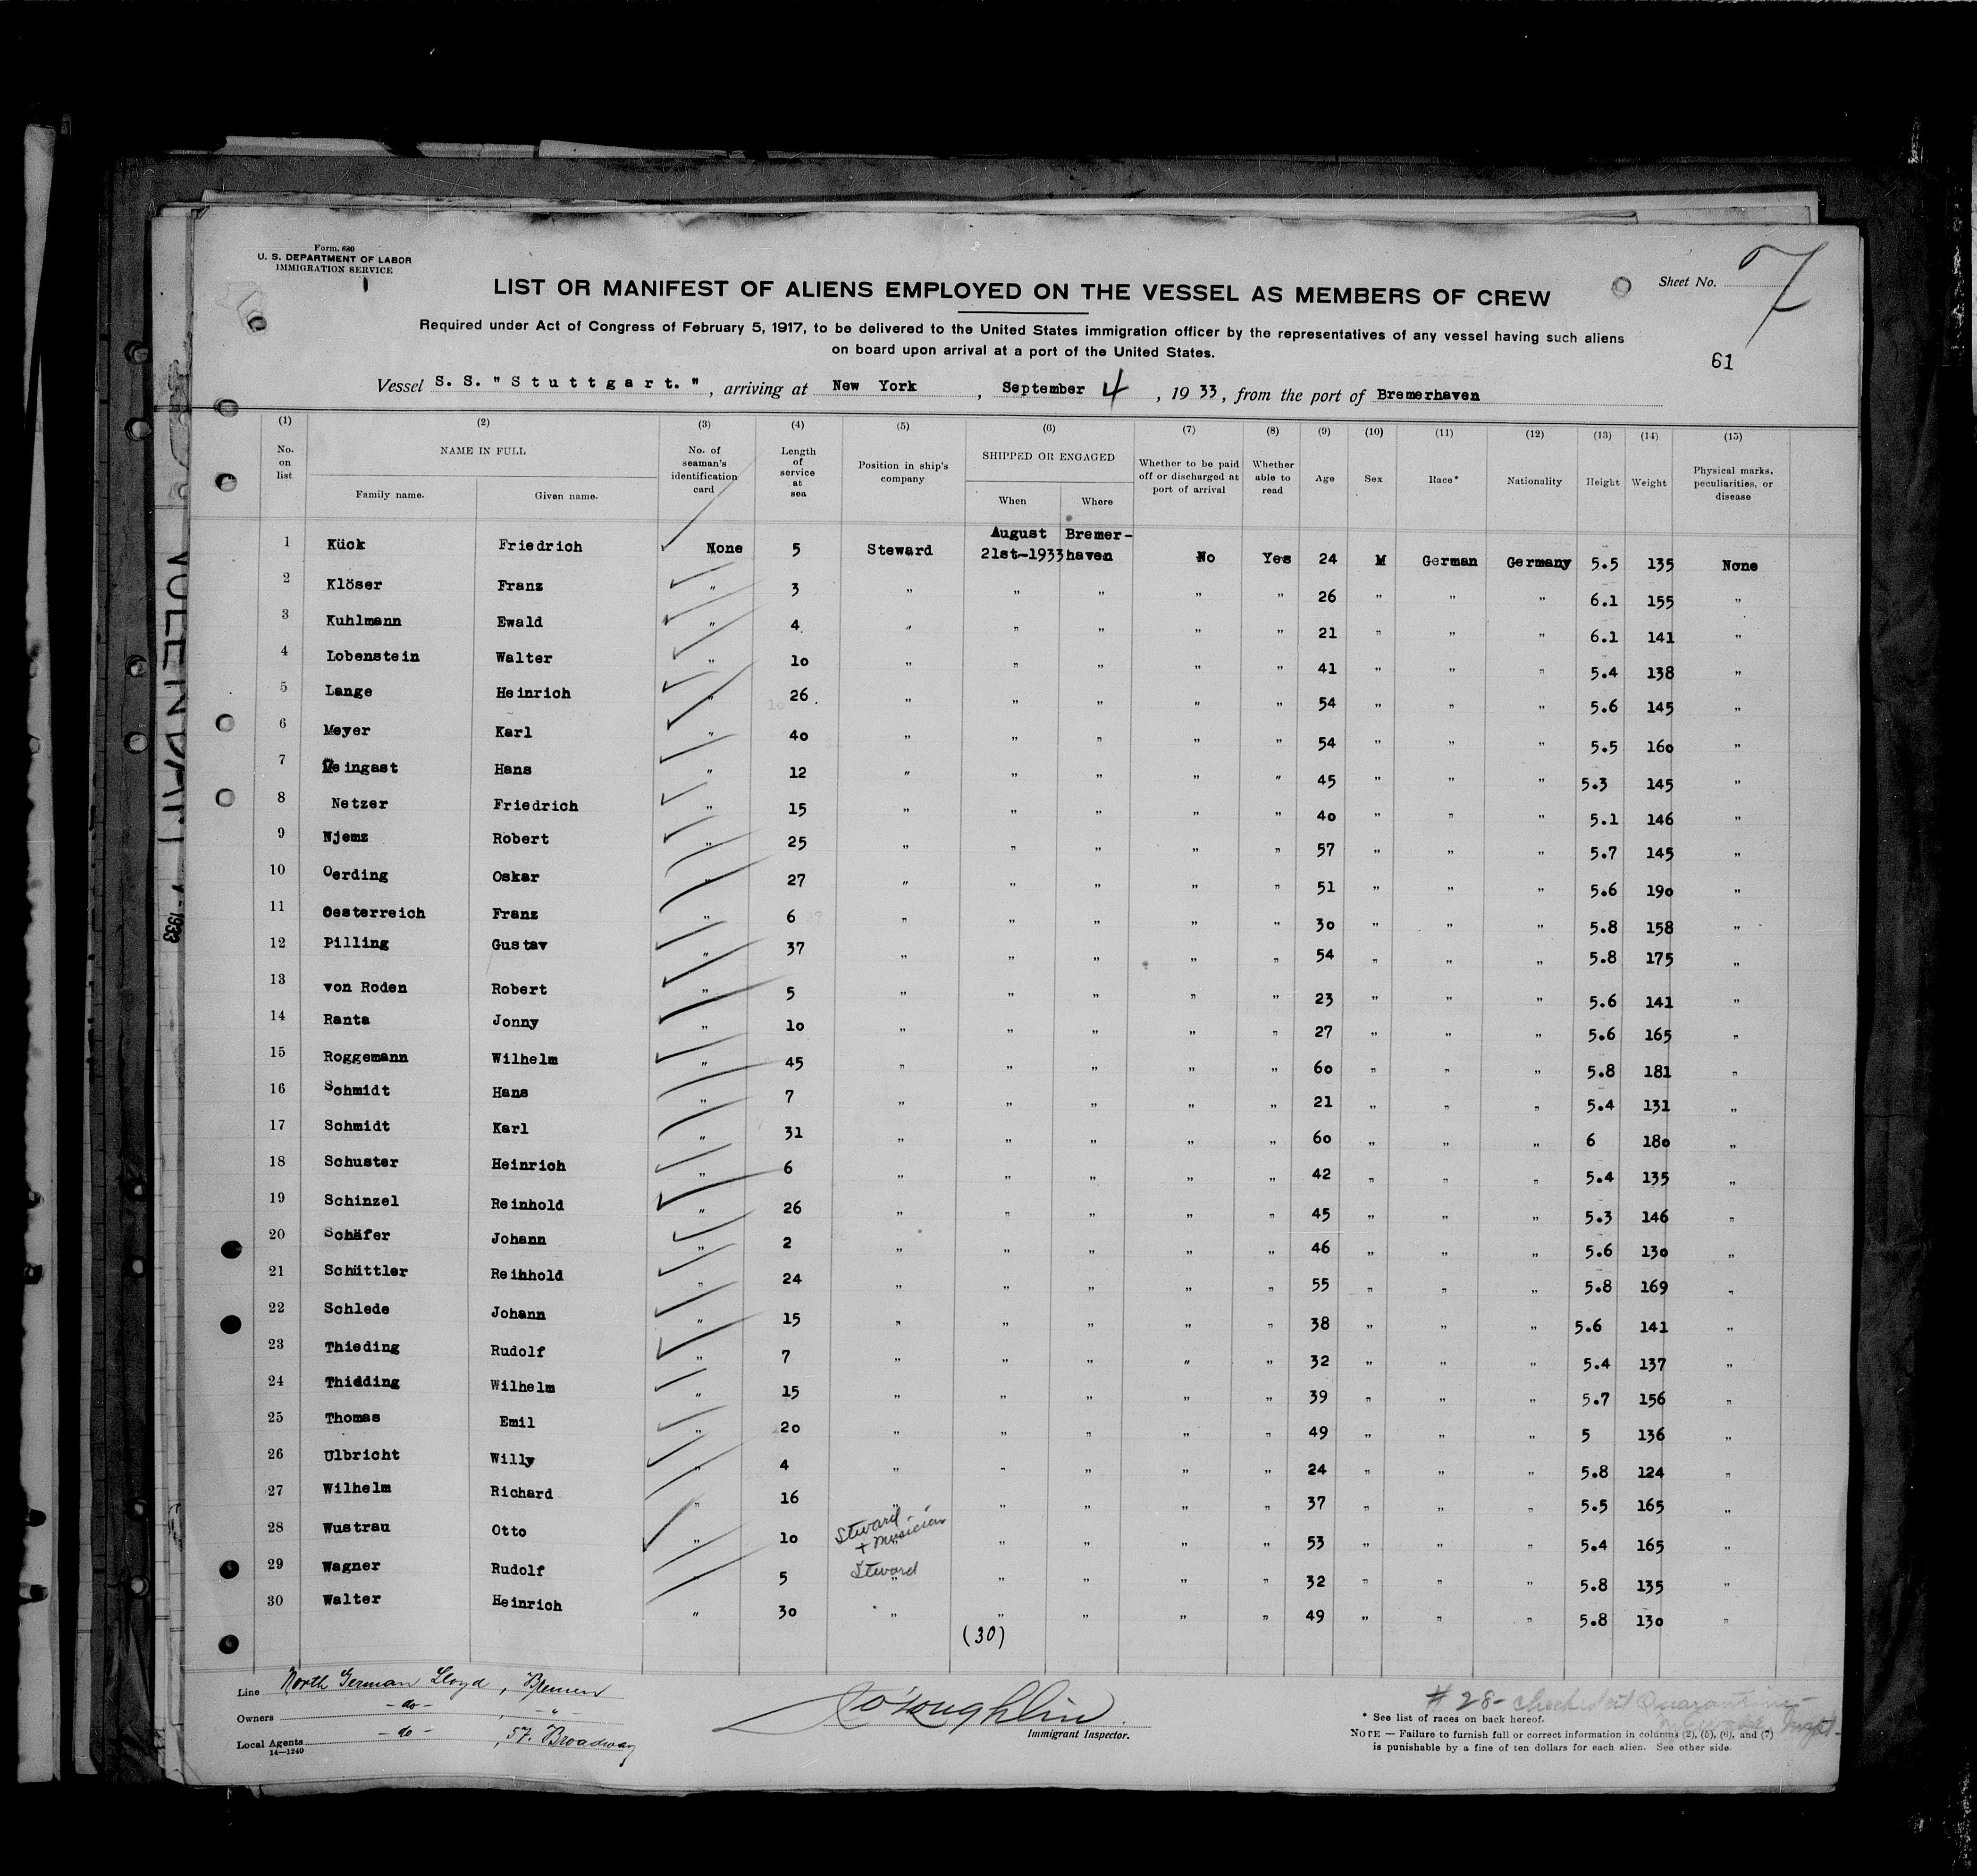 Form. 680
U. S. DEPARTMENT OF LABOR
IMMIGRATION SERVICE
LIST OR MANIFEST OF ALIENS EMPLOYED ON THE VESSEL AS MEMBERS OF CREW
Sheet No. 7
Required under Act of Congress of February 5, 1917, to be delivered to the United States immigration officer by the representatives of any vessel having such aliens
on board upon arrival at a port of the United States.
61
Vessel S. S. "Stuttgart.", arriving at New York, September 4, 1933, from the port of Bremerhaven
(1) (2) (3) (4) (5) (6) (7) (8) (9) (10) (11) (12) (13) (14) (15)
No. on list NAME IN FULL Family name. Given name. No. of seaman's identification card Length of service at sea Position in ship's company SHIPPED OR ENGAGED When Where Whether to be paid off or discharged at port of arrival Whether able to read Age Sex Race* Nationality Height Weight Physical marks, peculiarities, or disease
1 Kück Friedrich None 5 Steward August 21st-1933 Bremer-haven No Yes 24 M German Germany 5.5 135 None
2 Klöser Franz " 3 " " " " " 26 " " " 6.1 155 "
3 Kuhlmann Ewald " 4 " " " " " 21 " " " 6.1 141 "
4 Lobenstein Walter " 10 " " " " " 41 " " " 5.4 138 "
5 Lange Heinrich " 26 " " " " " 54 " " " 5.6 145 "
6 Meyer Karl " 40 " " " " " 54 " " " 5.5 160 "
7 eingast Hans " 12 " " " " " 45 " " " 5.3 145 "
8 Netzer Friedrich " 15 " " " " " 40 " " " 5.1 146 "
9 Njemz Robert " 25 " " " " " 57 " " " 5.7 145 "
10 Oerding Oskar " 27 " " " " " 51 " " " 5.6 190 "
11 Oesterreich Franz " 6 " " " " " 30 " " " 5.8 158 "
12 Pilling Gustav " 37 " " " " " 54 " " " 5.8 175 "
13 von Roden Robert " 5 " " " " " 23 " " " 5.6 141 "
14 Ranta Jonny " 10 " " " " " 27 " " " 5.6 165 "
15 Roggemann Wilhelm " 45 " " " " " 60 " " " 5.8 181 "
16 Schmidt Hans " 7 " " " " " 21 " " " 5.4 131 "
17 Schmidt Karl " 31 " " " " " 60 " " " 6 180 "
18 Schuster Heinrich " 6 " " " " " 42 " " " 5.4 135 "
19 Schinzel Reinhold " 26 " " " " " 45 " " " 5.3 146 "
20 Schäfer Johann " 2 " " " " " 46 " " " 5.6 130 "
21 Schüttler Reinhold " 24 " " " " " 55 " " " 5.8 169 "
22 Schlede Johann " 15 " " " " " 38 " " " 5.6 141 "
23 Thieding Rudolf " 7 " " " " " 32 " " " 5.4 137 "
24 Thidding Wilhelm " 15 " " " " " 39 " " " 5.7 156 "
25 Thomas Emil " 20 " " " " " 49 " " " 5 136 "
26 Ulbricht Willy " 4 " " " " " 24 " " " 5.8 124 "
27 Wilhelm Richard " 16 " " " " " 37 " " " 5.5 165 "
28 Wustrau Otto " 10 Steward + Musician " " " " 53 " " " 5.4 165 "
29 Wagner Rudolf " 5 Steward " " " " " 32 " " " 5.8 135 "
30 Walter Heinrich " 30 " " " " " 49 " " " 5.8 130 "
(30)
Line North German Lloyd, Bremen
Owners -do- , -"-
Local Agents -do- , 57. Broadway
14—1240
O'Loughlin
Immigrant Inspector.
#28- Checked at Quarantine-
* See list of races on back hereof.
NOTE — Failure to furnish full or correct information in columns (2), (5), (6), and (7)
is punishable by a fine of ten dollars for each alien. See other side.
VOLENDAM
1933